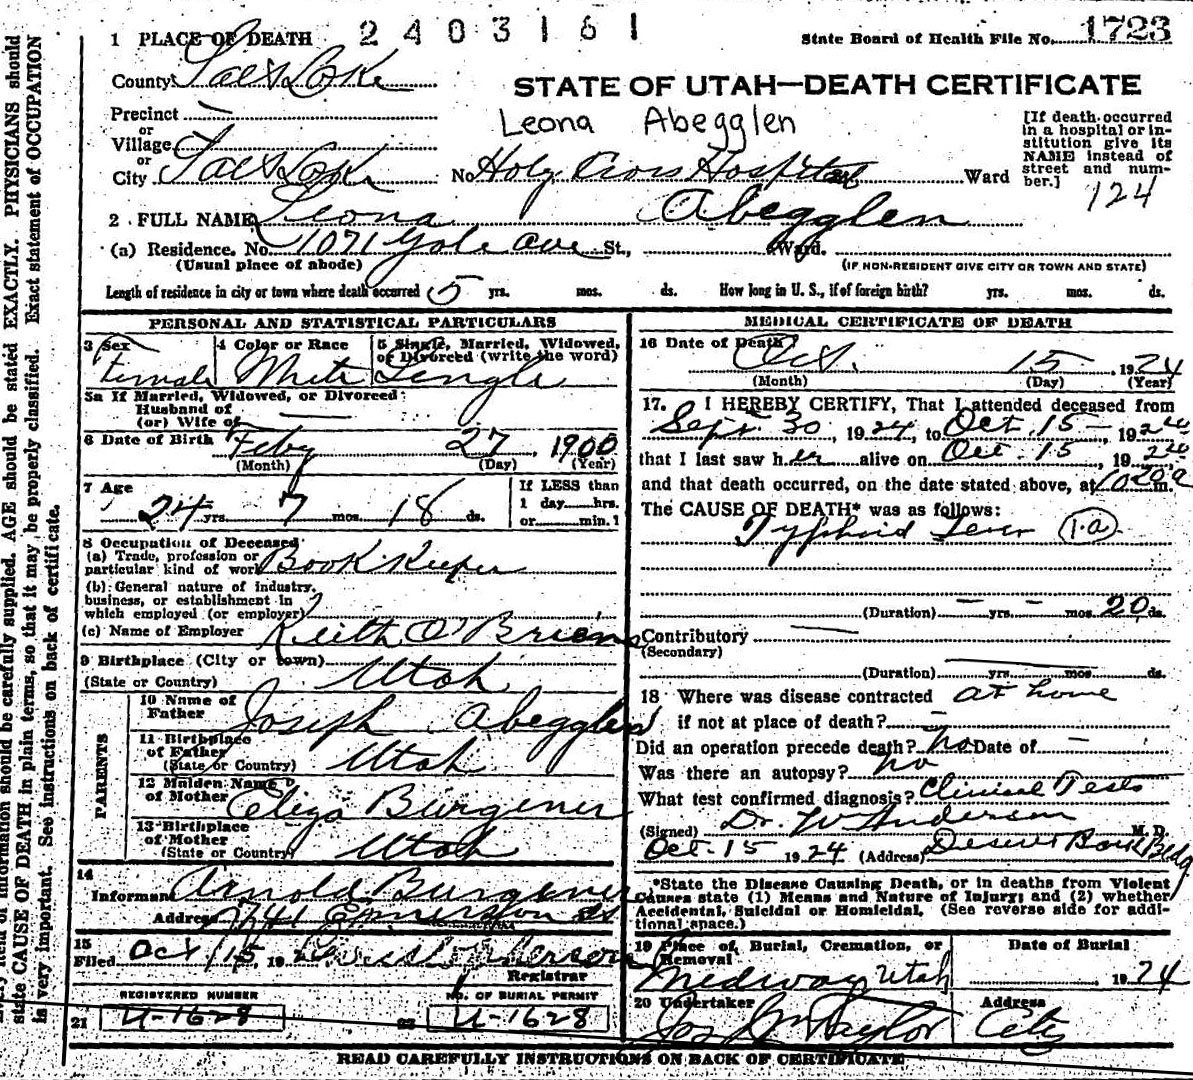 2403161
State Board of Health File No. 1723
1 PLACE OF DEATH
County Salt Lake
STATE OF UTAH—DEATH CERTIFICATE
Precinct —
or
Village
or
City Salt Lake
Leona Abegglen
No. Holy Cross Hospital Ward
[If death occurred
in a hospital or in-
stitution give its
NAME instead of
street and num-
ber.]
124
2 FULL NAME Leona Abegglen
(a) Residence. No. 1071 Yale Ave St., Ward.
(Usual place of abode)
(IF NON-RESIDENT GIVE CITY OR TOWN AND STATE)
Length of residence in city or town where death occurred 5 yrs. mos. ds. How long in U. S., if of foreign birth? yrs. mos. ds.
PERSONAL AND STATISTICAL PARTICULARS
3 Sex
Female
4 Color or Race
White
5 Single, Married, Widowed,
or Divorced (write the word)
Single
5a If Married, Widowed, or Divorced
Husband of
(or) Wife of —
6 Date of Birth Feby 27, 1900
(Month) (Day) (Year)
7 Age
24 yrs. 7 mos. 18 ds.
If LESS than
1 day hrs.
or min.
8 Occupation of Deceased
(a) Trade, profession or
particular kind of work Book Keeper
(b) General nature of industry,
business, or establishment in
which employed (or employer)
(c) Name of Employer Keith O'Briens
9 Birthplace (City or town)
(State or Country) Utah
PARENTS
10 Name of
Father Joseph Abegglen
11 Birthplace
of Father
(State or Country) Utah
12 Maiden Name
of Mother Eliza Burgener
13 Birthplace
of Mother
(State or Country) Utah
14
Informant Arnold Burgener
Address 1741 Emmerson
15
Filed Oct 15, 19
Registrar
REGISTERED NUMBER
21 U-1628
NO. OF BURIAL PERMIT
22 U-1628
MEDICAL CERTIFICATE OF DEATH
16 Date of Death
Oct. 15, 1924
(Month) (Day) (Year)
17. I HEREBY CERTIFY, That I attended deceased from
Sept 30, 1924, to Oct. 15, 1924
that I last saw her alive on Oct. 15, 1924
and that death occurred, on the date stated above, at 10 20 a m.
The CAUSE OF DEATH* was as follows:
Typhoid Fever (1-a)
(Duration) — yrs. — mos. 20 ds.
Contributory —
(Secondary)
(Duration) yrs. mos. ds.
18 Where was disease contracted at home
if not at place of death? —
Did an operation precede death? No Date of —
Was there an autopsy? no
What test confirmed diagnosis? Clinical Tests
(Signed) Dr. W Anderson M. D.
Oct. 15 1924 (Address) Deseret Bank Bldg
*State the Disease Causing Death, or in deaths from Violent
Causes state (1) Means and Nature of Injury; and (2) whether
Accidental, Suicidal or Homicidal. (See reverse side for addi-
tional space.)
19 Place of Burial, Cremation, or
Removal
Midway Utah
Date of Burial
1924
20 Undertaker
Jos Wm Taylor
Address
City
READ CAREFULLY INSTRUCTIONS ON BACK OF CERTIFICATE
information should be carefully supplied. AGE should be stated EXACTLY. PHYSICIANS should
state CAUSE OF DEATH in plain terms, so that it may be properly classified. Exact statement of OCCUPATION
is very important. See instructions on back of certificate.